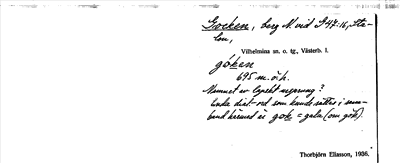 Goeken, berg N. vid S47:16, Ste-
lon,
Vilhelmina sn. o. tg., Västerb. l.
göken
695 m. ö. h.
Namnet av lapskt ursprung?
Enda dial.-ord som kunde sättas i sam-
band härmed är gok = gala (om gök).
Thorbjörn Eliasson, 1936.